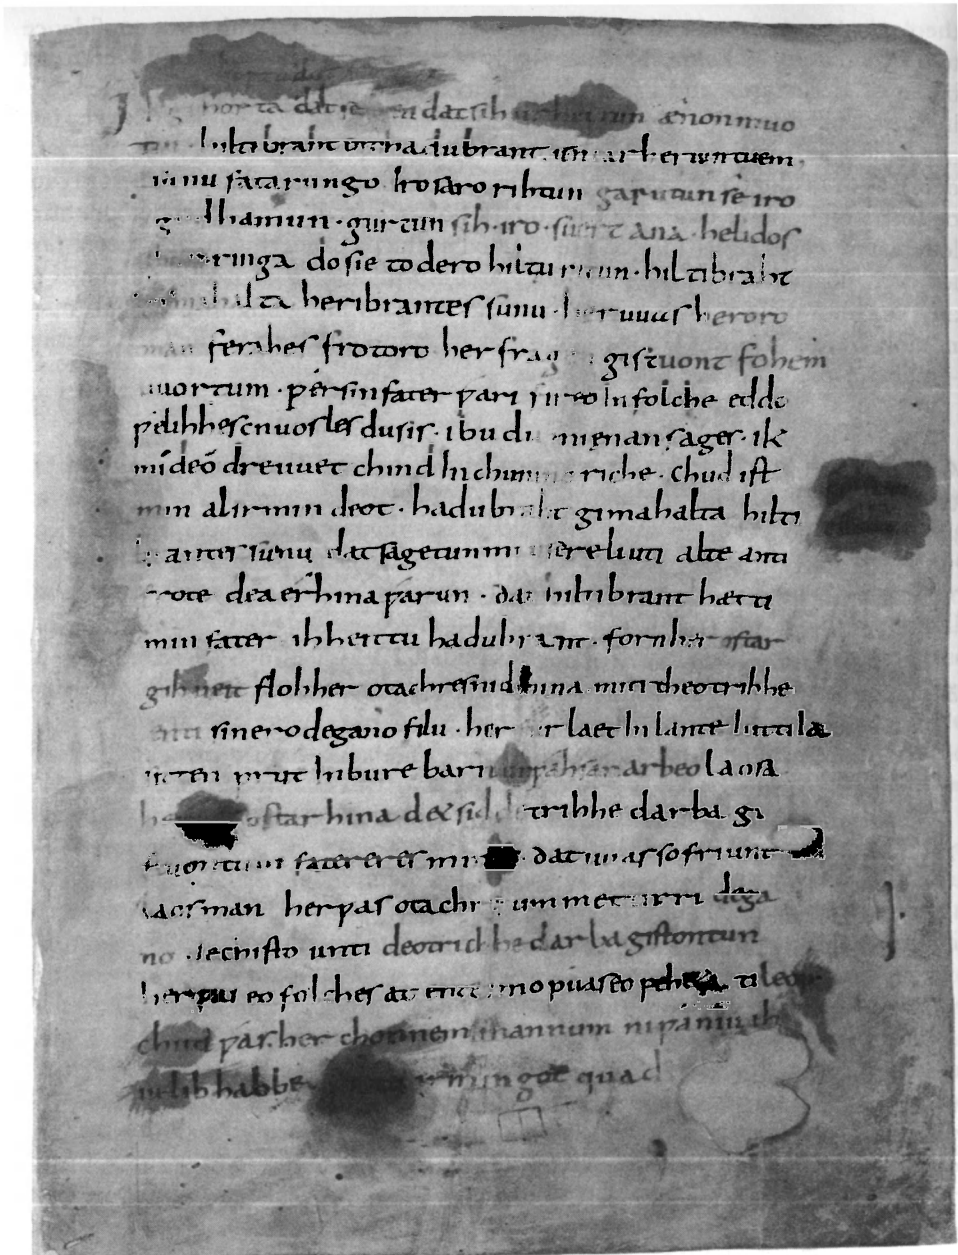 Ik gihorta đat seggen đat sih urhettun ænon muo
tin. hiltibraht enti hađubrant. untar heriun tuem.
sunu fatarungo. iro saro rihtun garutun se iro
guđhamun. gurtun sih. iro. suert ana. helidos
ubar ringa do sie to dero hiltu ritun. hiltibraht
gimahalta heribrantes sunu. her uuas heroro
man ferahes frotoro. her fragen gistuont fohem
uuortum. ƿer sin fater ƿari fireo In folche eddo
ƿelihhes cnuosles du sis. ibu du mi enan sages. ik
mi de odre uuet chind In chunincriche. chud ist
min al irmindeot. hadubraht gimahalta hilti
brantes sunu dat sagetun mi usere liuti alte anti
frote dea érhina ƿarun. dat hiltibrant hætti
min fater. ih heittu hadubrant. forn her ostar
gihueit floh her otachres nid hina miti theotrihhe
enti sinero degano filu. her furlaet In lante luttila
sitten prut In bure barn unƿahsan arbeo laosa
her raet ostar hina det sid detrihhe darba gi
stuontum fatereres mines. dat uuas so friunt
laos man her ƿas otachre ummet tirri dega
no dechisto unti deotrichhe darba gistontun
her ƿas eo folches at ente imo ƿuas eo ƿeheta ti leop
chud ƿas her chonnem mannum ni ƿaniu ih
iu lib habbe irmingot quad